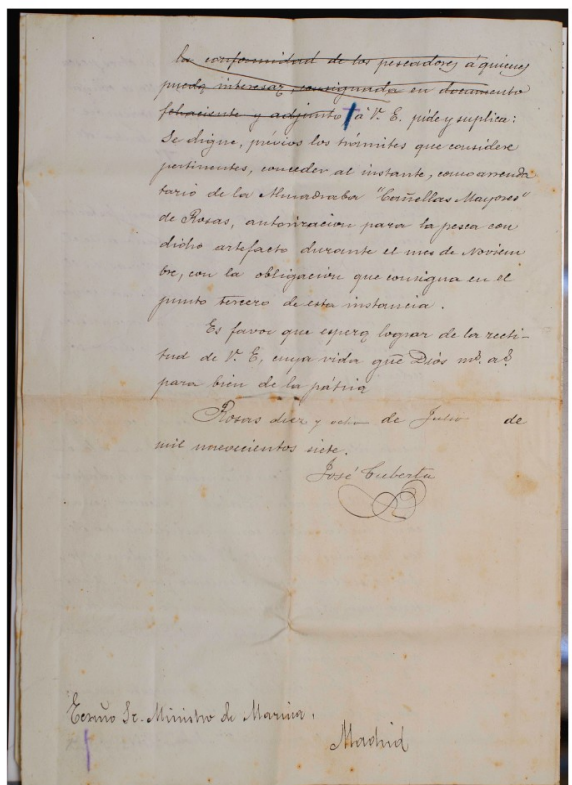 la conformidad de los pescadores á quienes
pueda interesar, consignada en documento
fehaciente y adjunto á V. E. pide y suplica:
Se digne, prévios los trámites que considere
pertinentes, conceder al instante, como arrenda
tario de la Almadraba "Cañellas Mayores"
de Rosas, autorizacion para la pesca con
dicho artefacto durante el mes de Noviem
bre, con la obligación que consigna en el
punto tercero de esta instancia.
Es favor que espera lograr de la recti-
tud de V. E, cuya vida gue Diós ms. as.
para bien de la pátria
Rosas diez y ocho de Julio de
mil novecientos siete.
José Cuberta
Excmo Sr. Ministro de Marina.
Madrid